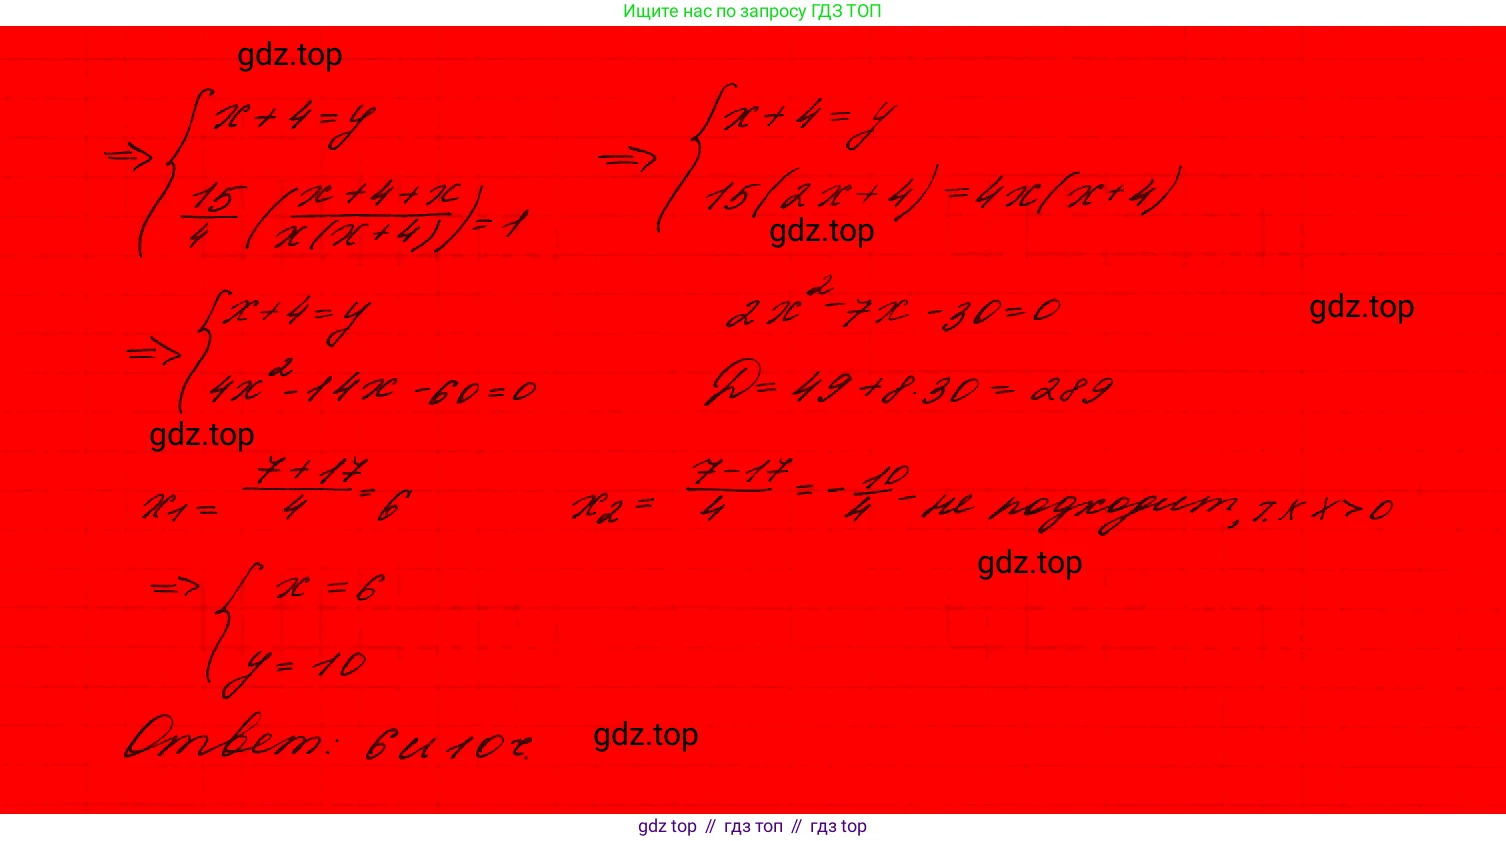 Ищите нас по запросу ГДЗ ТОП
gdz.top
⇒ { x + 4 = y ⇒ { x + 4 = y
15/4 ((x + 4 + x)/(x(x + 4))) = 1 15(2x + 4) = 4x(x + 4)
gdz.top
⇒ { x + 4 = y 2x² - 7x - 30 = 0
gdz.top
4x² - 14x - 60 = 0 D = 49 + 8·30 = 289
gdz.top
x₁ = (7 + 17)/4 = 6 x₂ = (7 - 17)/4 = - 10/4 - не подходит, т.к x > 0
gdz.top
⇒ { x = 6
y = 10
Ответ: 6 и 10 ч.
gdz.top
gdz top // гдз топ // гдз top